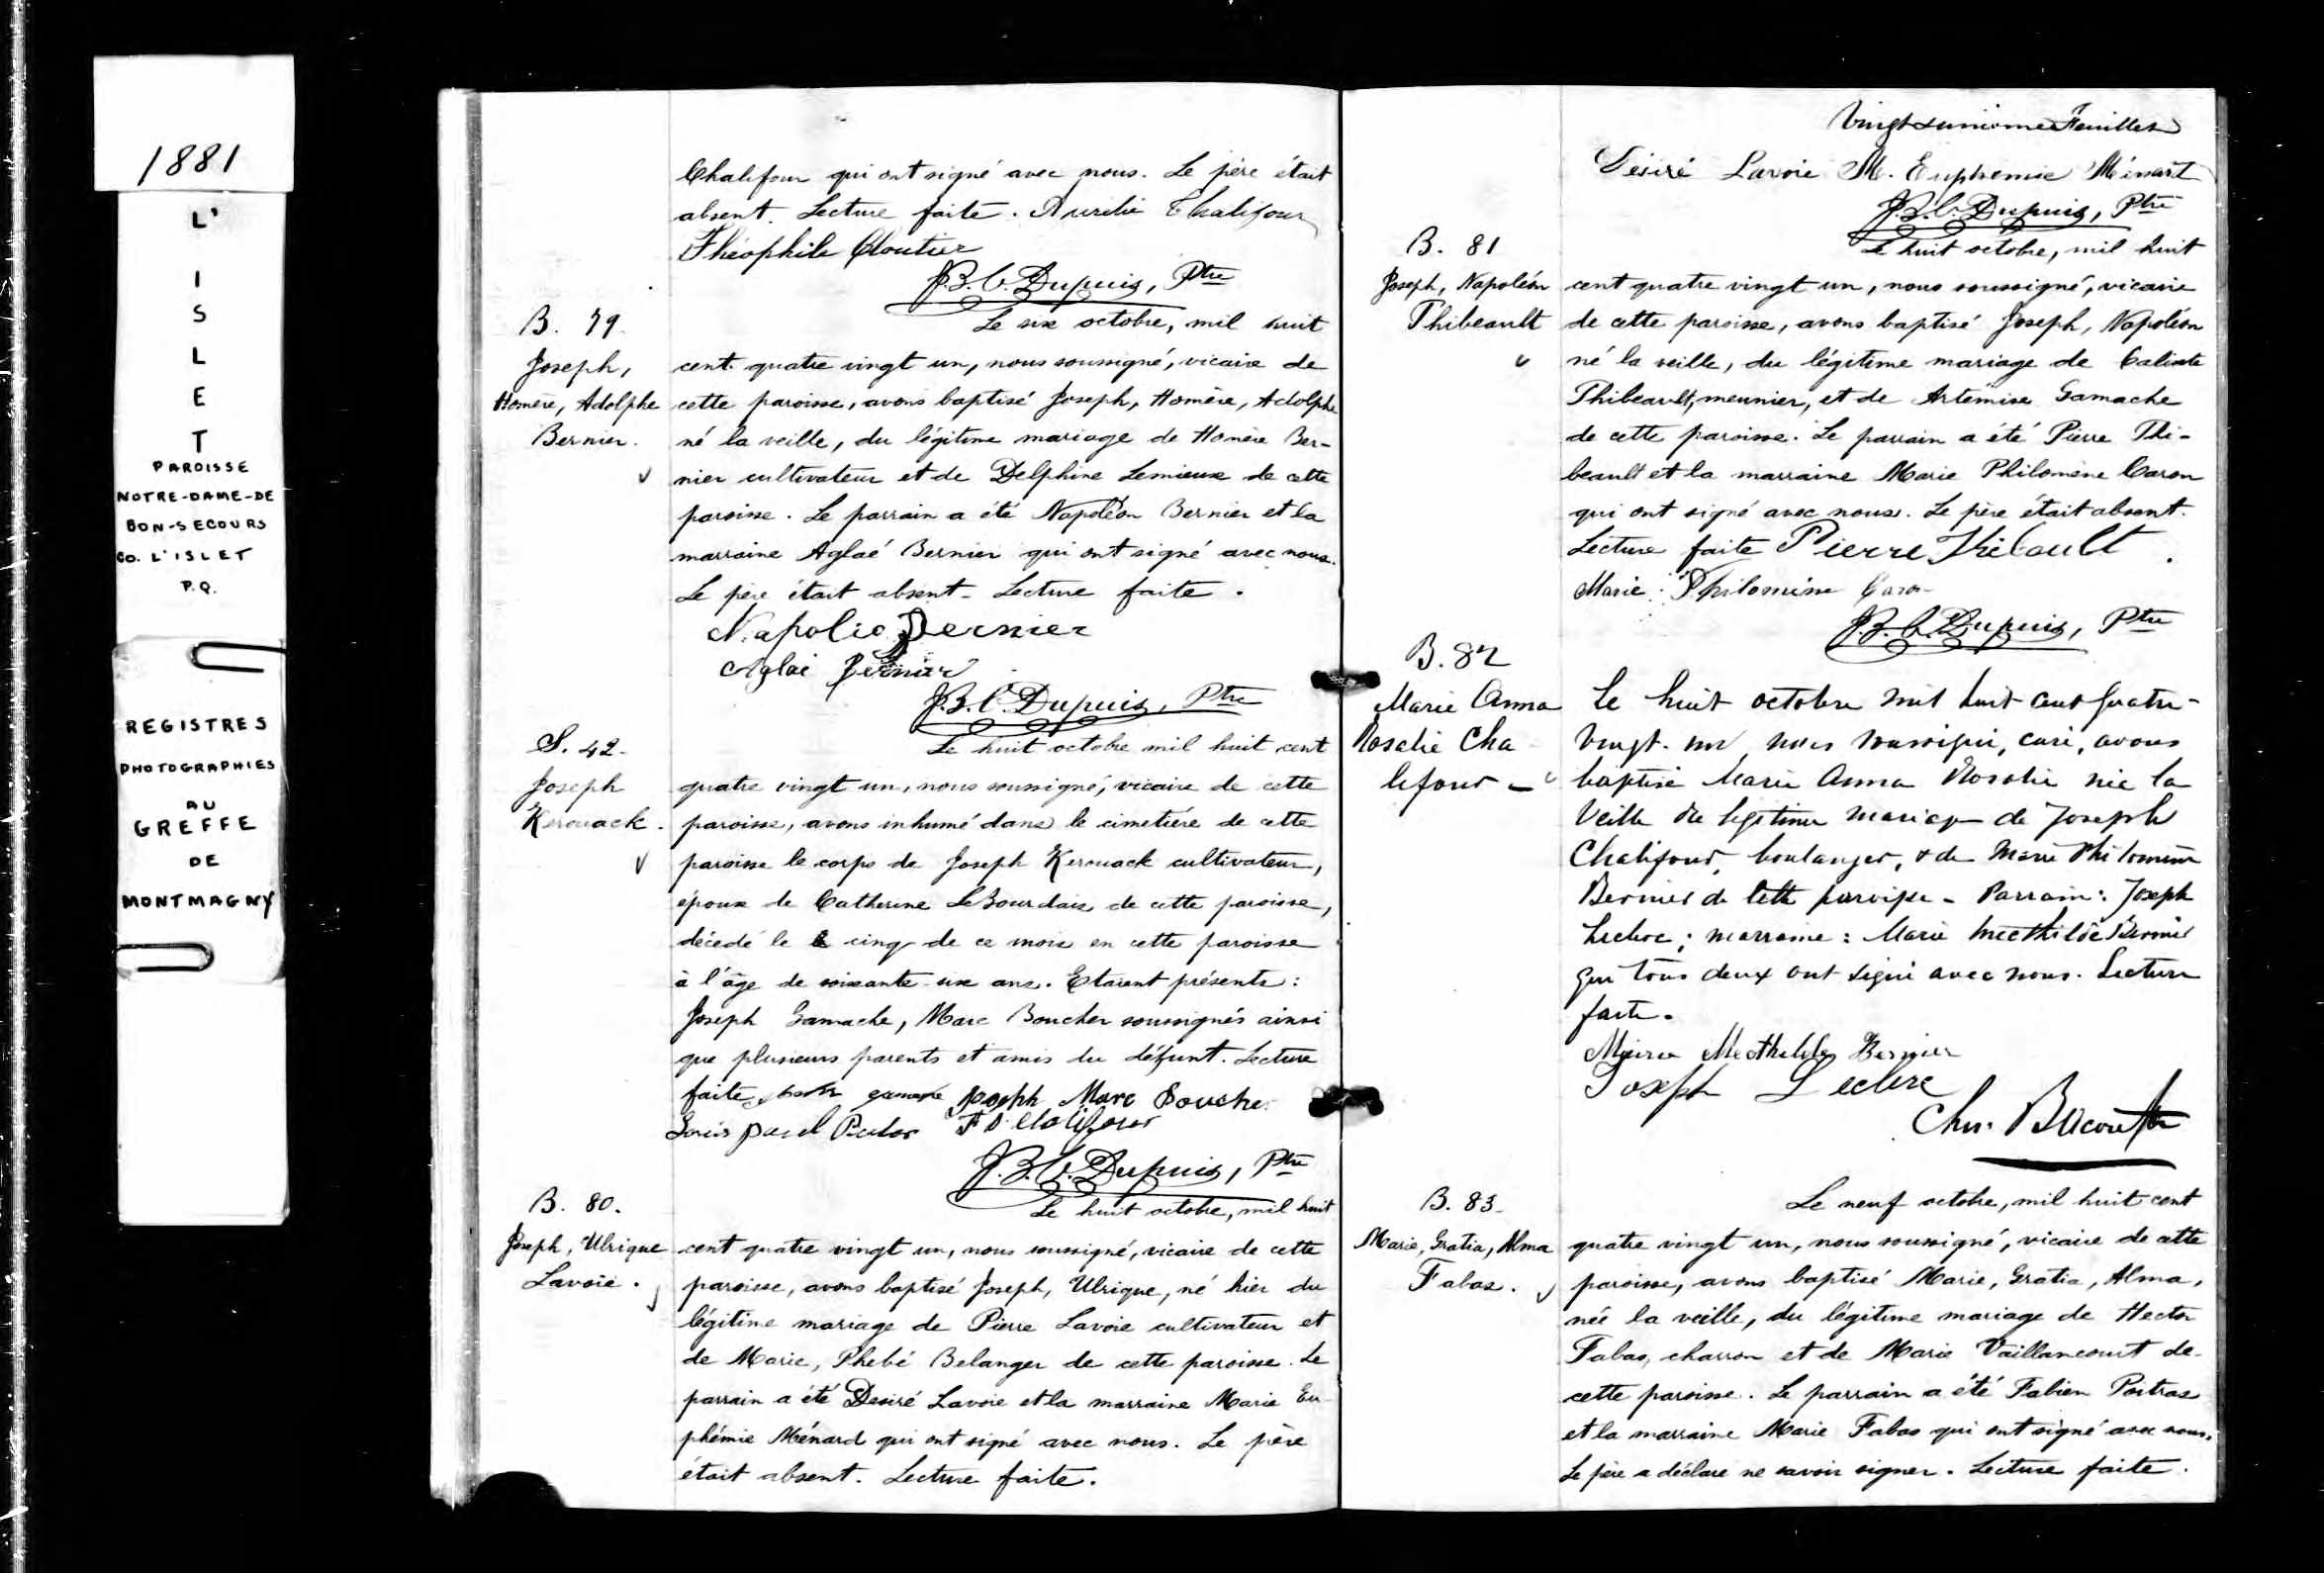 1881
L'
I
S
L
E
T
PAROISSE
NOTRE-DAME-DE
BON-SECOURS
CO. L'ISLET
P.Q.
REGISTRES
PHOTOGRAPHIES
AU
GREFFE
DE
MONTMAGNY
Chalifour qui ont signé avec nous. Le père était
absent. Lecture faite. Aurélie Chalifour
Théophile Cloutier
J.B.C. Dupuis, Ptre
B. 79.
Joseph,
Homère, Adolphe
Bernier.
Le six octobre, mil huit
cent quatre vingt un, nous soussigné, vicaire de
cette paroisse, avons baptisé Joseph, Homère, Adolphe
né la veille, du légitime mariage de Homère Ber-
nier cultivateur et de Delphine Lemieux de cette
paroisse. Le parrain a été Napoléon Bernier et la
marraine Aglaé Bernier qui ont signé avec nous.
Le père était absent. Lecture faite.
Napoleo Bernier
Aglaé Bernier
J.B.C. Dupuis, Ptre
S. 42.
Joseph
Kerouack.
Le huit octobre mil huit cent
quatre vingt un, nous soussigné, vicaire de cette
paroisse, avons inhumé dans le cimetière de cette
paroisse le corps de Joseph Kerouack cultivateur,
époux de Catherine LeBourdais, de cette paroisse,
décedé le cinq de ce mois en cette paroisse
à l'âge de soixante-six ans. Etaient présents:
Joseph Gamache, Marc Boucher soussignés ainsi
que plusieurs parents et amis du défunt. Lecture
faite Joseph Marc Bouche
Louis
J.B.C. Dupuis, Ptre
B. 80.
Joseph, Ulrique
Lavoie.
Le huit octobre, mil huit
cent quatre vingt un, nous soussigné, vicaire de cette
paroisse, avons baptisé Joseph, Ulrique, né hier du
légitime mariage de Pierre Lavoie cultivateur et
de Marie, Phebé Belanger de cette paroisse. Le
parrain a été Desiré Lavoie et la marraine Marie Eu-
phémie Ménard qui ont signé avec nous. Le père
était absent. Lecture faite.
Désiré Lavoie M. Euphemie Ménart
J.B.C. Dupuis, Ptre
B. 81
Joseph, Napoléon
Thibeault
Le huit octobre, mil huit
cent quatre vingt un, nous soussigné, vicaire
de cette paroisse, avons baptisé Joseph, Napoléon
né la veille, du légitime mariage de Calixte
Thibeault, meunier, et de Artémise Gamache
de cette paroisse. Le parrain a été Pierre Thi-
beault et la marraine Marie Philomène Caron
qui ont signé avec nous. Le père était absent.
Lecture faite Pierre Thibault
Marie Philomène Caron
J.B.C. Dupuis, Ptre
B. 82
Marie Anna
Rosalie Cha
lifour -
Le huit octobre mil huit cent quatre-
vingt-un nous soussigné, curé, avons
baptisé Marie Anna Rosalie née la
veille du légitime mariage de Joseph
Chalifour, boulanger, & de Marie Philomène
Bernier de cette paroisse - Parrain: Joseph
Leclerc; marraine: Marie Mecthilde Bernier
qui tous deux ont signé avec nous. Lecture
faite.
Marie Mecthilde Bernier
Joseph Leclerc
Chs. Bacon Ptre
B. 83.
Marie, Gratia, Alma
Fabas.
Le neuf octobre, mil huit cent
quatre vingt un, nous soussigné, vicaire de cette
paroisse, avons baptisé Marie, Gratia, Alma,
née la veille, du légitime mariage de Hector
Fabas, charron et de Marie Vaillancourt de
cette paroisse. Le parrain a été Fabien Poitras
et la marraine Marie Fabas qui ont signé avec nous.
Le père a déclaré ne savoir signer. Lecture faite.